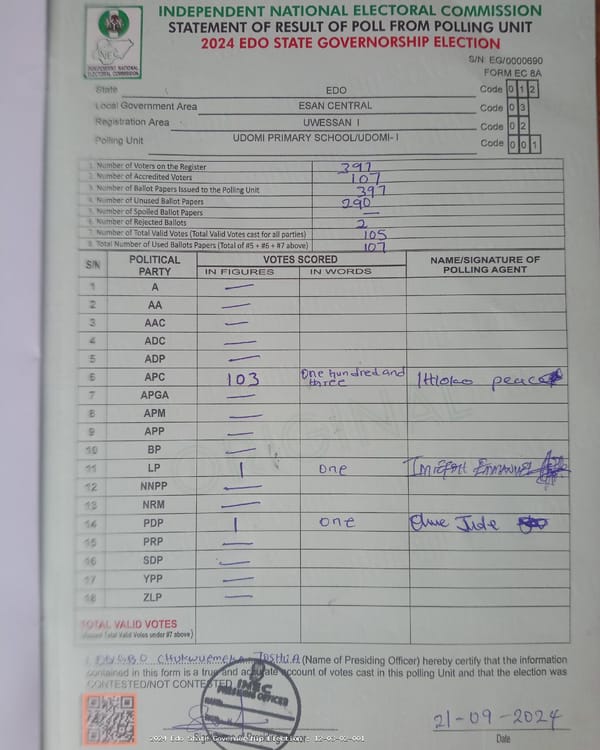 INDEPENDENT NATIONAL ELECTORAL COMMISSION
STATEMENT OF RESULT OF POLL FROM POLLING UNIT
2024 EDO STATE GOVERNORSHIP ELECTION
INDEPENDENT NATIONAL ELECTORAL COMMISSION
S/N: EG/0000690
FORM EC 8A
State EDO Code 0 1 2
Local Government Area ESAN CENTRAL Code 0 3
Registration Area UWESSAN I Code 0 2
Polling Unit UDOMI PRIMARY SCHOOL/UDOMI- I Code 0 0 1
1. Number of Voters on the Register 397
2. Number of Accredited Voters 107
3. Number of Ballot Papers Issued to the Polling Unit 397
4. Number of Unused Ballot Papers 290
5. Number of Spoiled Ballot Papers —
6. Number of Rejected Ballots 2
7. Number of Total Valid Votes (Total Valid Votes cast for all parties) 105
8. Total Number of Used Ballots Papers (Total of #5 + #6 + #7 above) 107
S/N POLITICAL PARTY VOTES SCORED NAME/SIGNATURE OF POLLING AGENT
IN FIGURES IN WORDS
1 A —
2 AA —
3 AAC —
4 ADC —
5 ADP —
6 APC 103 One hundred and three peace
7 APGA —
8 APM —
9 APP —
10 BP —
11 LP 1 one
12 NNPP —
13 NRM —
14 PDP 1 one Jude
15 PRP —
16 SDP —
17 YPP —
18 ZLP —
TOTAL VALID VOTES
(Total Valid Votes under #7 above)
I, CHUKWUEMEKA JOSHUA (Name of Presiding Officer) hereby certify that the information
contained in this form is a true and accurate account of votes cast in this polling Unit and that the election was
CONTESTED/NOT CONTESTED
INEC
PRESIDING OFFICER
21-09-2024
Date
2024 Edo State Governorship Election: 12-03-02-001